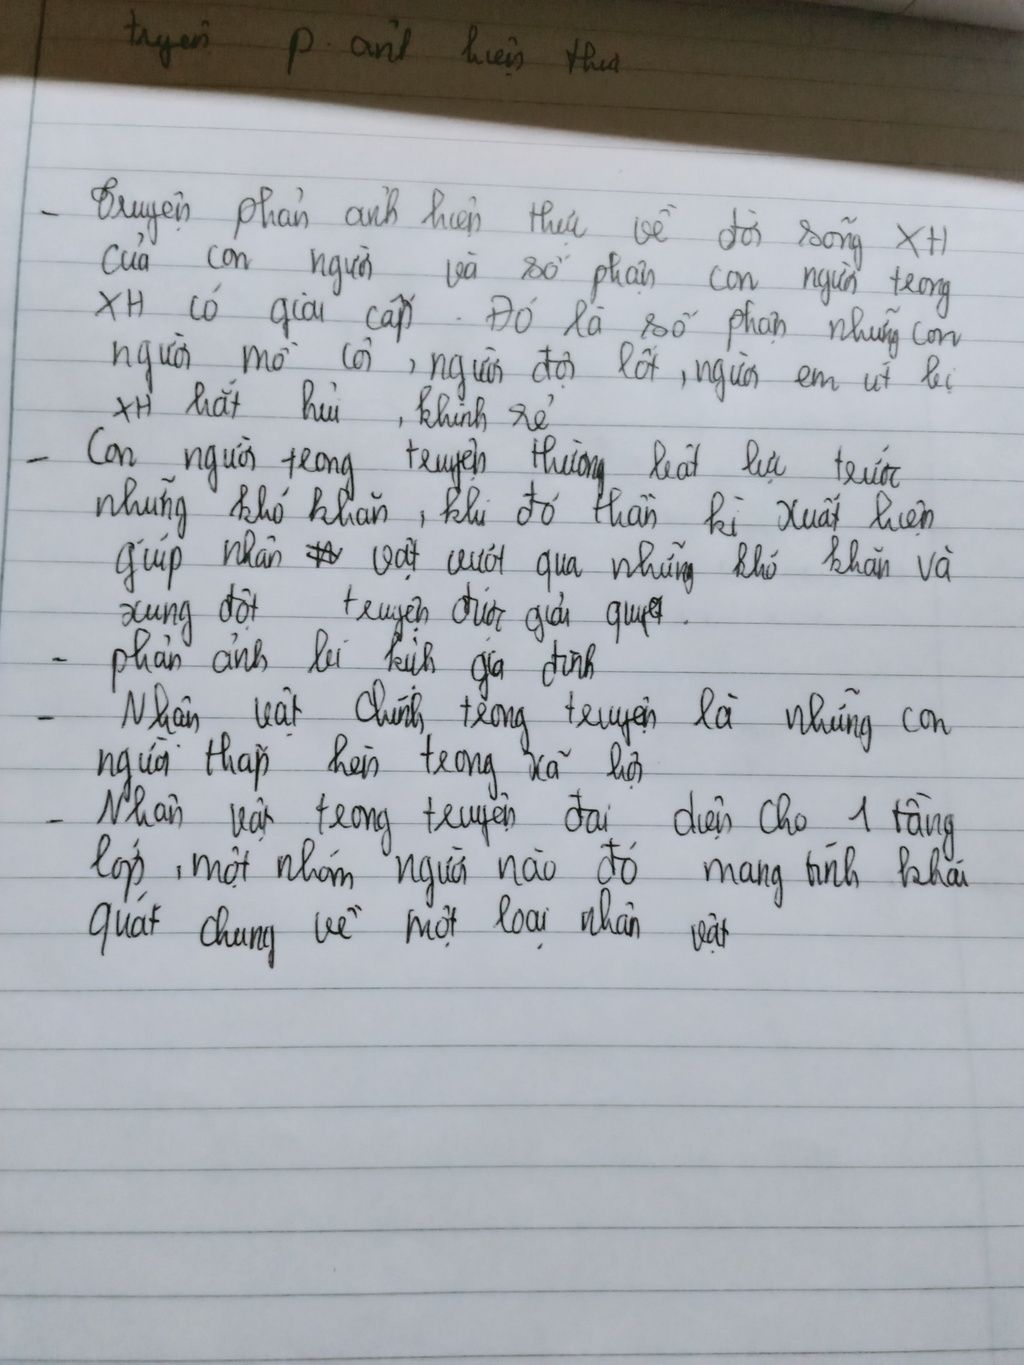 truyện p. ánh hiện thực
- Truyện phản ánh hiện thực về đời sống XH
của con người và số phận con người trong
XH có giai cấp. Đó là số phận những con
người mồ côi, người đội lốt, người em út bị
XH hắt hủi, khinh rẻ
- Con người trong truyện thường bất lực trước
những khó khăn, khi đó thần kì xuất hiện
giúp nhân vật vượt qua những khó khăn và
xung đột truyện được giải quyết.
- phản ánh bi kịch gia đình
- Nhân vật chính trong truyện là những con
người thấp hèn trong xã hội
- Nhân vật trong truyện đại diện cho 1 tầng
lớp, một nhóm người nào đó mang tính khái
quát chung về một loại nhân vật